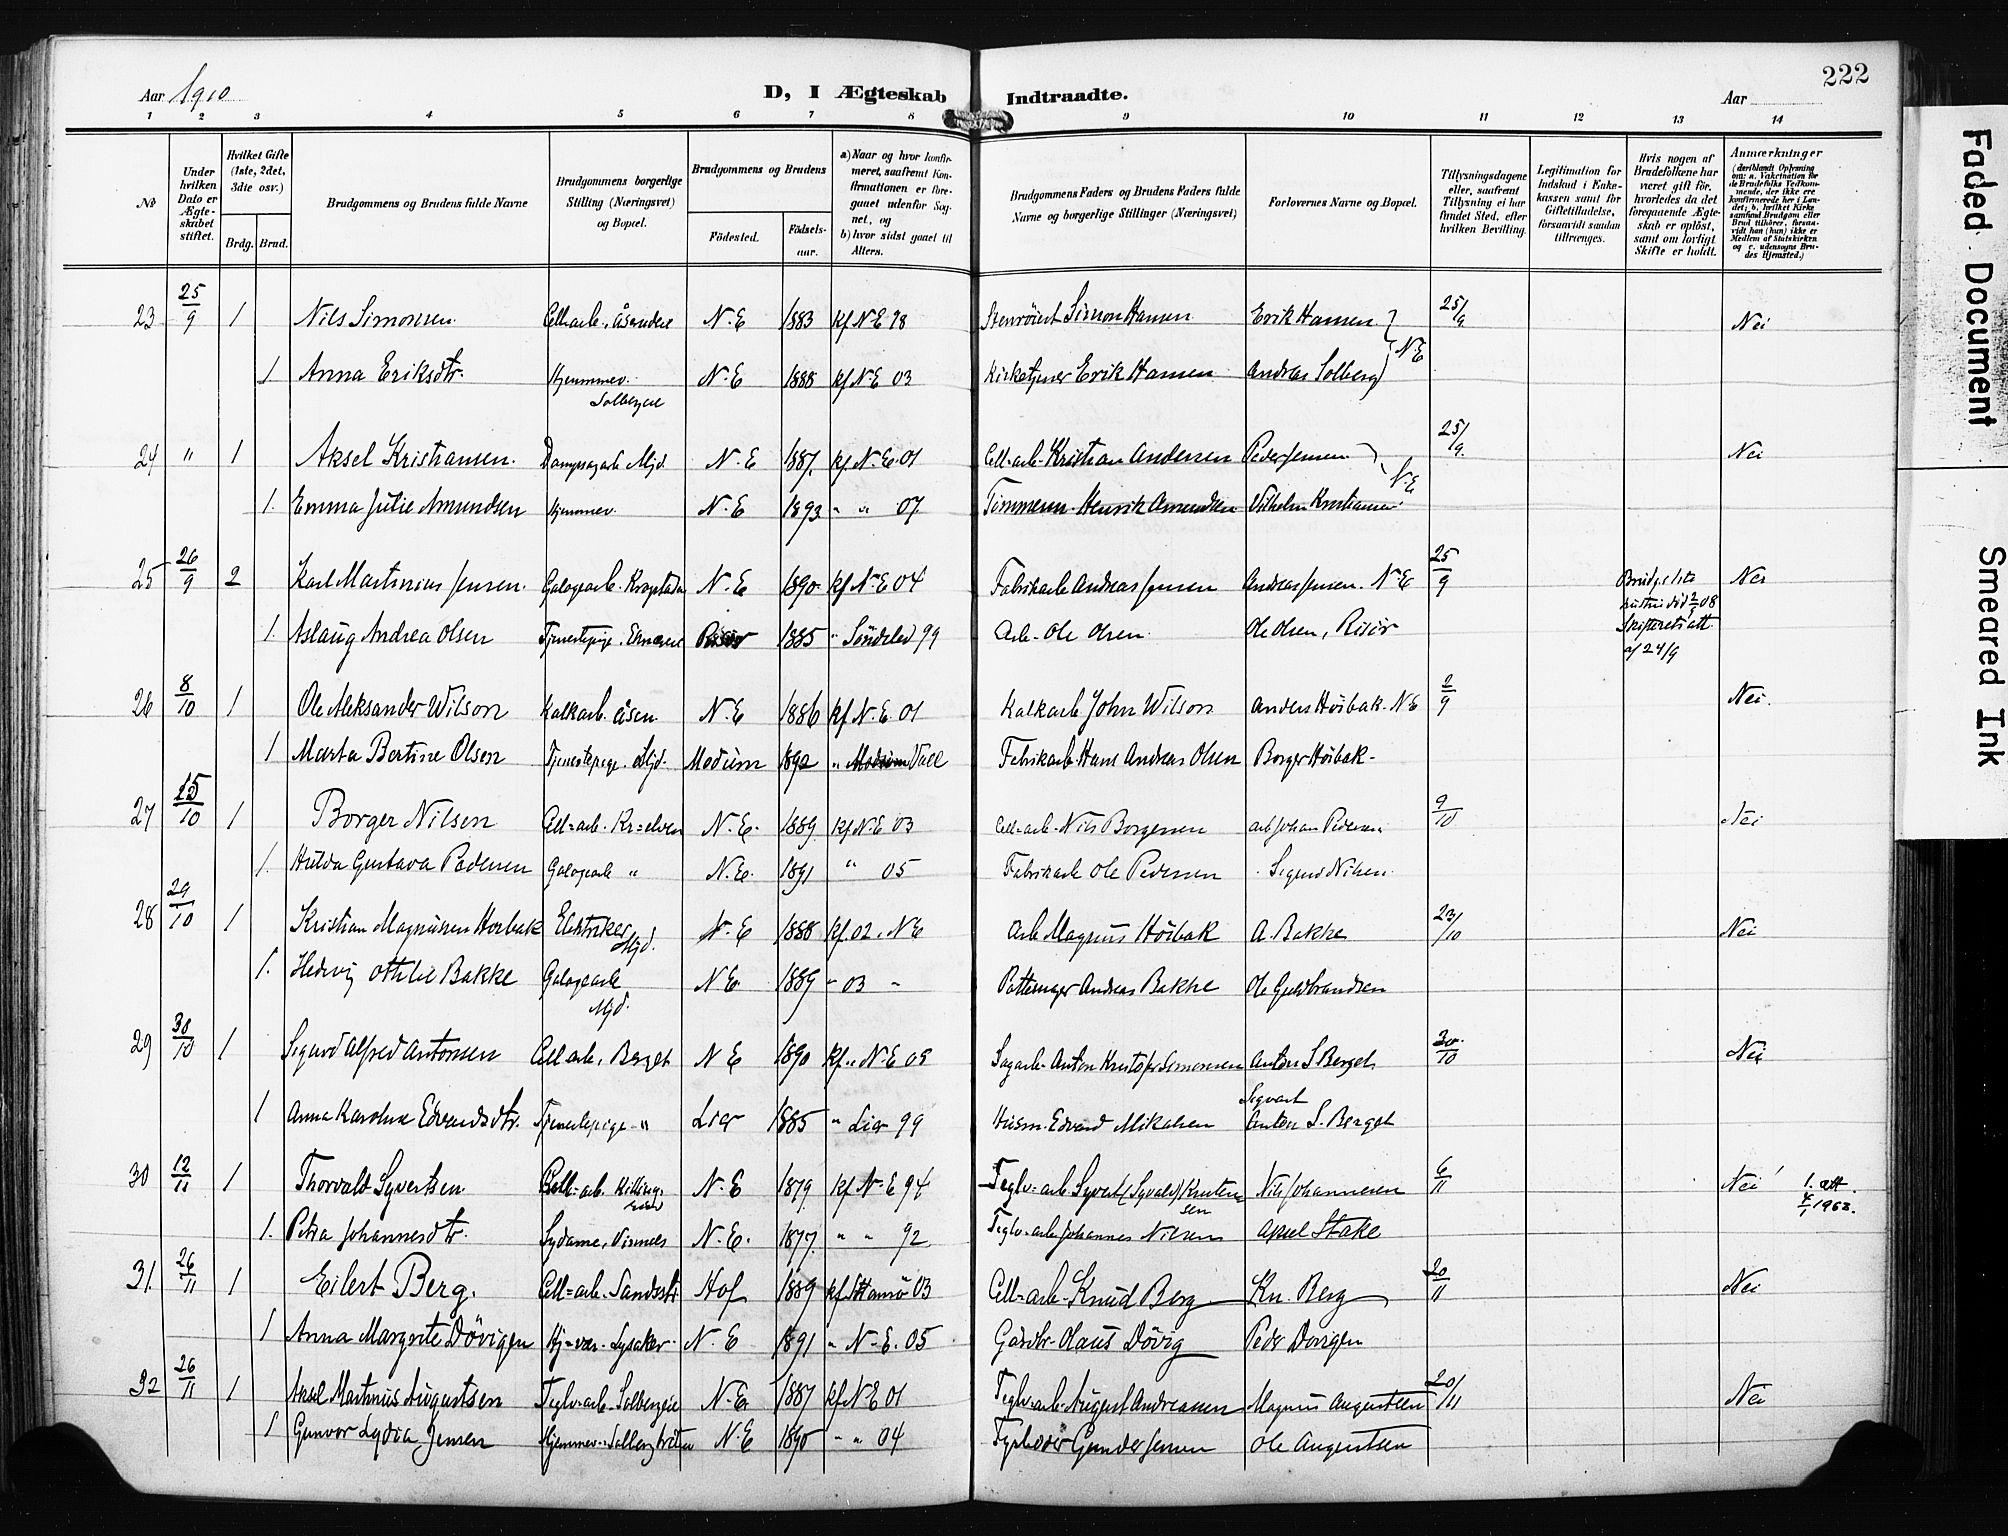 222
Aar 1910
D, I Ægteskab Indtraadte.
Aar
1 2 3 4 5 6 7 8 9 10 11 12 13 14
No
Under hvilken Dato er Ægteskabet stiftet.
Hvilket Gifte (1ste, 2det, 3die osv.)
Brdg. Brud.
Brudgommens og Brudens fulde Navne
Brudgommens borgerlige Stilling (Næringsvei) og Bopæl.
Brudgommens og Brudens
Fødested. Fødselsaar.
a) Naar og hvor konfirmeret, saafremt Konfirmationen er foregaaet udenfor Sognet, og
b) hvor sidst gaaet til Alters.
Brudgommens Faders og Brudens Faders fulde Navne og borgerlige Stillinger (Næringsvei)
Forlovernes Navne og Bopæl.
Tillysningsdagene eller, saafremt Tillysning ei har fundet Sted, efter hvilken Bevilling.
Legitimation for Indskud i Enkekassen samt for Giftetilladelse, forsaavidt saadan tiltrænges.
Hvis nogen af Brudefolkene har været gift før, hvorledes da det foregaaende Ægteskab er opløst, samt om lovligt Skifte er holdt.
Anmærkninger
(deriblandt Oplysning om: a. Vakcination for de Brudefolks Vedkommende, der ikke ere konfirmerede her i Landet; b. hvilket Kirkesamfund Brudgom eller Brud tilhører, forsaavidt han (hun) ikke er Medlem af Statskirken og c. udensogns Brudes Hjemsted.)
23 25/9 1 Nils Simonsen Cellarb. Åserudeie N.E 1883 kf N.E 98 Simon Hansen Erik Hansen } N.E 25/9 Nei
1 Anna Eriksdtr. Hjemmev. Solbergeie N.E 1888 kf N.E 03 Kirketjener Erik Hansen Andreas Solberg
24 " 1 Aksel Kristiansen. Dampsagarb Mjd. N.E 1887. kf N.E. 01 Cell-arb Kristian Andersen Peder Jensen } N.E 25/9. Nei
1. Emma Julie Amundsen Hjemmev. N.E 1893 " " 07 Tømmerm. Henrik Amundsen Vilhelm Kristiansen
25 26/9 2 Karl Martinius Jensen. Galogearb. Krogstad N.E 1890 kf N.E 04 Fabrikarb Andreas Jensen Andreas Jensen. N.E 25/9 Nei
1. Aslaug Andrea Olsen Tjenestepige. Risør 1885 " Søndeled 99 Arb- Ole Olsen Ole Olsen, Risør
Brudg. sidste hustru død 2/5 08 Skifterets att. af 24/9
26 8/10 1 Ole Aleksander Wilson Kalkarb. Åsen. N.E 1886 kf N.E. 01 Kalkarb John Wilson Anders Høibak. N.E 2/9 Nei.
1 Marta Bertine Olsen Tjenestepige. Mjd. Modum 1892 " Modum Fabrikarb Hans Andreas Olsen Borger Høibak-
27 15/10 1 Borger Nilsen Cell=arb. Kr=elven N.E. 1889. kf N.E 03 Cell-arb- Nils Borgersen arb Johan Pedersen 9/10 Nei
1. Hulda Gustava Pedersen Galogearb " N.E. 1891 " 05 Fabrikarb Ole Pedersen Sigurd Nilsen.
28 29/10 1 Kristian Magnusen Høibak Elektriker Mjd. N.E 1888 kf. 02. NE Arb Magnus Høibak A. Bakke 23/10 Nei
1. Hedvig Othilie Bakke Galogearb Mjd. N.E. 1889 " 03 " Pottemager Andreas Bakke Ole Guldbrandsen
29 30/10 1 Sigurd Alfred Antonsen Cell arb. Berget N E 1890 kf. N.E 05 Sagarb- Anton Kristofer Simonsen Anton S Berget 30/10 Nei
1 Anna Karoline Edvardsdtr. Tjenestepige " Lier 1885 " Lier 99 Husm. Edvard Mikalsen Sigvart Anton S. Berget
30 12/11 1 Thorvald Syvertsen Cell=arb. N.E 1879. kf N.E 94 Teglv=arb Syvert (Syvald) Knutensen Nils Johannesen 6/11 Nei 1. att. 4/1 1963.
1. Petra Johannesdtr. Sydame, N.E. 1877. " " 92 Teglv-arb Johannes Nilsen Aksel Stake
31 26/11 1 Eilert Berg. Cell=arb. Sandsstr. Hof 1889 kf Strømsø 03 Cell=arb. Knud Berg Kn. Berg 20/11 Nei
1 Anna Margrete Døvigen Hj=vær. Lysaker N.E 1891 " N.E. 05 Gårdbr. Olaus Døvig Peder Døvigen
32 26/11 1 Aksel Martinius Augustsen Teglv=arb. Solbergeie N.E. 1887 kf N.E 01 Teglv-arb. August Andreassen Magnus Augustsen 20/11 Nei
1 Gunvor Lydia Jensen Hjemmev. N.E 1890 " " 04 Fyrbøder Gunder Jensen Ole Augustsen
Faded Document
Smeared Ink